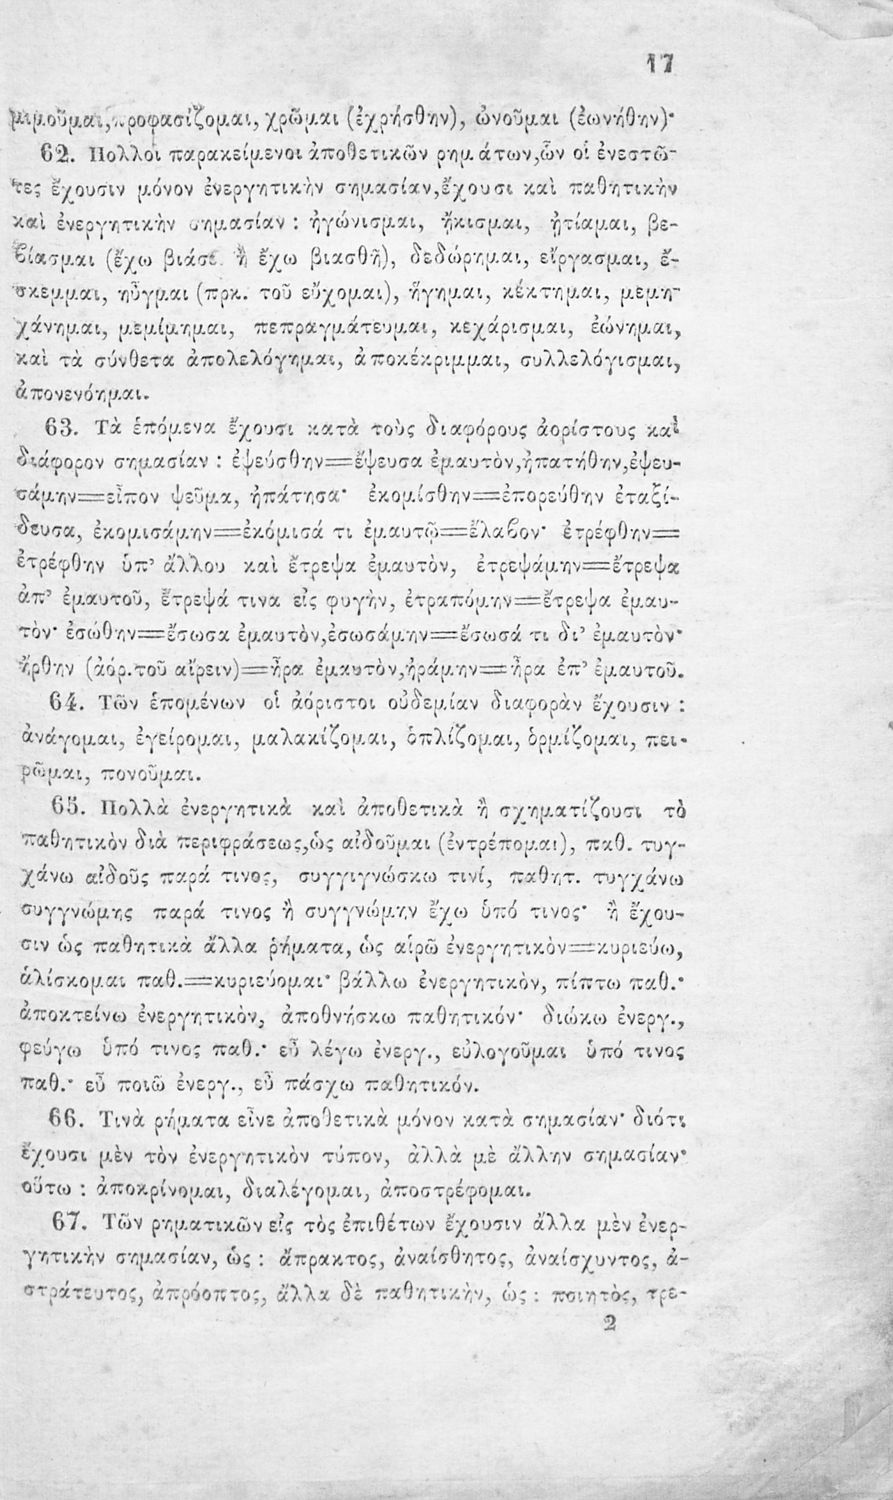 17
μιμοῦμαι, προφασίζομαι, χρῶμαι (ἐχρήσθην), ὠνοῦμαι (ἐωνήθην)·
62. Πολλοὶ παρακείμενοι ἀποθετικῶν ρημάτων, ὧν οἱ ἐνεστῶ-
τες ἔχουσιν μόνον ἐνεργητικὴν σημασίαν, ἔχουσι καὶ παθητικὴν
καὶ ἐνεργητικὴν σημασίαν : ἠγώνισμαι, ᾔκισμαι, ᾐτίαμαι, βε-
βίασμαι (ἔχω βιάσε ἢ ἔχω βιασθῆ), δεδώρημαι, εἴργασμαι, ἔ-
σκεμμαι, ηὖγμαι (πρκ. τοῦ εὔχομαι), ἥγημαι, κέκτημαι, μεμη-
χάνημαι, μεμίμημαι, πεπραγμάτευμαι, κεχάρισμαι, ἐώνημαι,
καὶ τὰ σύνθετα ἀπολελόγημαι, ἀποκέκριμμαι, συλλελόγισμαι,
ἀπονενόημαι.
63. Τὰ ἑπόμενα ἔχουσι κατὰ τοὺς διαφόρους ἀορίστους καὶ
διάφορον σημασίαν : ἐψεύσθην=ἔψευσα ἐμαυτὸν, ἠπατήθην, ἐψευ-
σάμην=εἶπον ψεῦμα, ἠπάτησα· ἐκομίσθην=ἐπορεύθην ἐταξί-
δευσα, ἐκομισάμην=ἐκόμισά τι ἐμαυτῷ=ἔλαβον· ἐτρέφθην=
ἐτρέφθην ὑπ’ ἄλλου καὶ ἔτρεψα ἐμαυτὸν, ἐτρεψάμην=ἔτρεψα
ἀπ’ ἐμαυτοῦ, ἔτρεψά τινα εἰς φυγὴν, ἐτραπόμην=ἔτρεψα ἐμαυ-
τὸν· ἐσώθην=ἔσωσα ἐμαυτὸν, ἐσωσάμην=ἔσωσά τι δι’ ἐμαυτὸν·
ἤρθην (ἀόρ. τοῦ αἴρειν)=ἦρα ἐμαυτὸν, ἠράμην=ἦρα ἐπ’ ἐμαυτοῦ.
64. Τῶν ἑπομένων οἱ ἀόριστοι οὐδεμίαν διαφορὰν ἔχουσιν :
ἀνάγομαι, ἐγείρομαι, μαλακίζομαι, ὁπλίζομαι, ὁρμίζομαι, πει-
ρῶμαι, πονοῦμαι.
65. Πολλὰ ἐνεργητικὰ καὶ ἀποθετικὰ ἢ σχηματίζουσι τὸ
παθητικὸν διὰ περιφράσεως, ὡς αἰδοῦμαι (ἐντρέπομαι), παθ. τυγ-
χάνω αἰδοῦς παρά τινος, συγγιγνώσκω τινί, παθητ. τυγχάνω
συγγνώμης παρά τινος ἢ συγγνώμην ἔχω ὑπό τινος· ἢ ἔχου-
σιν ὡς παθητικὰ ἄλλα ῥήματα, ὡς αἱρῶ ἐνεργητικὸν=κυριεύω,
ἁλίσκομαι παθ.=κυριεύομαι· βάλλω ἐνεργητικὸν, πίπτω παθ.·
ἀποκτείνω ἐνεργητικὸν, ἀποθνήσκω παθητικόν· διώκω ἐνεργ.,
φεύγω ὑπό τινος παθ.· εὖ λέγω ἐνεργ., εὐλογοῦμαι ὑπό τινος
παθ.· εὖ ποιῶ ἐνεργ., εὖ πάσχω παθητικόν.
66. Τινὰ ρήματα εἶνε ἀποθετικὰ μόνον κατὰ σημασίαν· διότι
ἔχουσι μὲν τὸν ἐνεργητικὸν τύπον, ἀλλὰ μὲ ἄλλην σημασίαν·
οὕτω : ἀποκρίνομαι, διαλέγομαι, ἀποστρέφομαι.
67. Τῶν ρηματικῶν εἰς τὸς ἐπιθέτων ἔχουσιν ἄλλα μὲν ἐνερ-
γητικὴν σημασίαν, ὡς : ἄπρακτος, ἀναίσθητος, ἀναίσχυντος, ἀ-
στράτευτος, ἀπρόοπτος, ἄλλα δὲ παθητικὴν, ὡς : ποιητὸς, τρε-
2